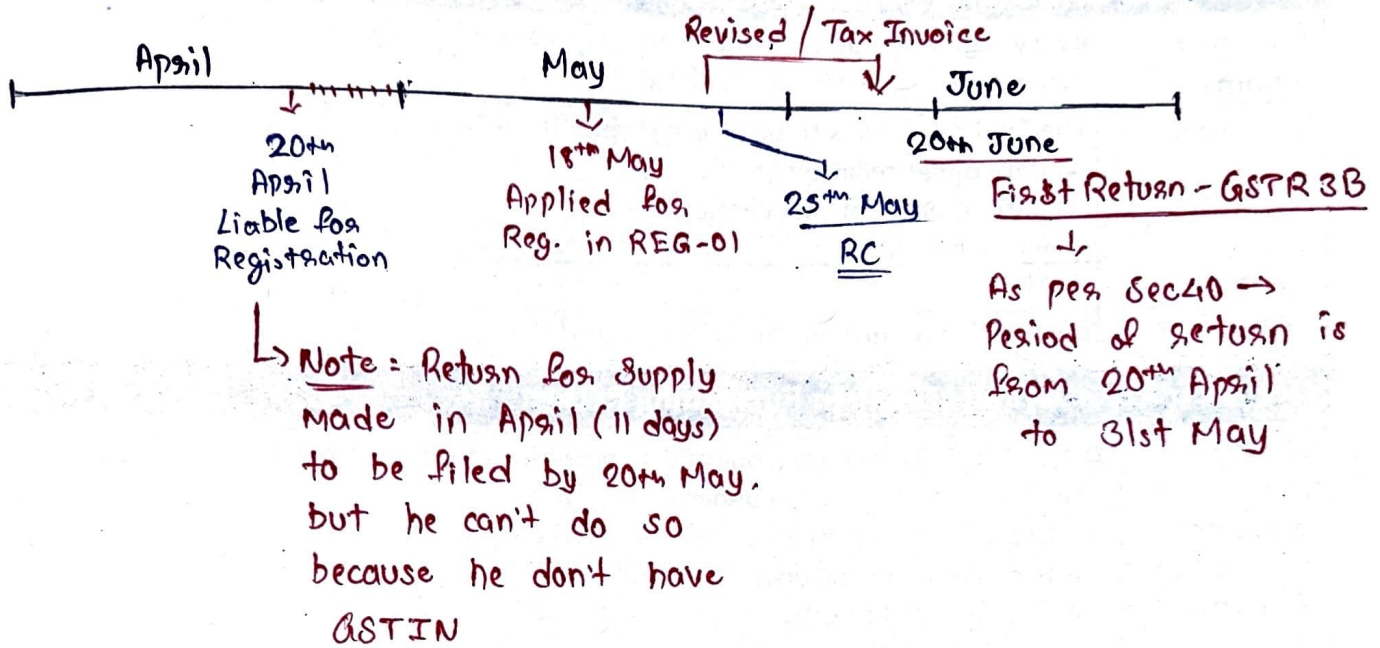 Revised / Tax Invoice
April
May
June
20th
April
Liable for
Registration
18th May
Applied for
Reg. in REG-01
25th May
RC
20th June
First Return - GSTR 3B
As per Sec40 →
Period of return is
from 20th April
to 31st May
Note = Return for Supply
made in April (11 days)
to be filed by 20th May.
but he can't do so
because he don't have
GSTIN